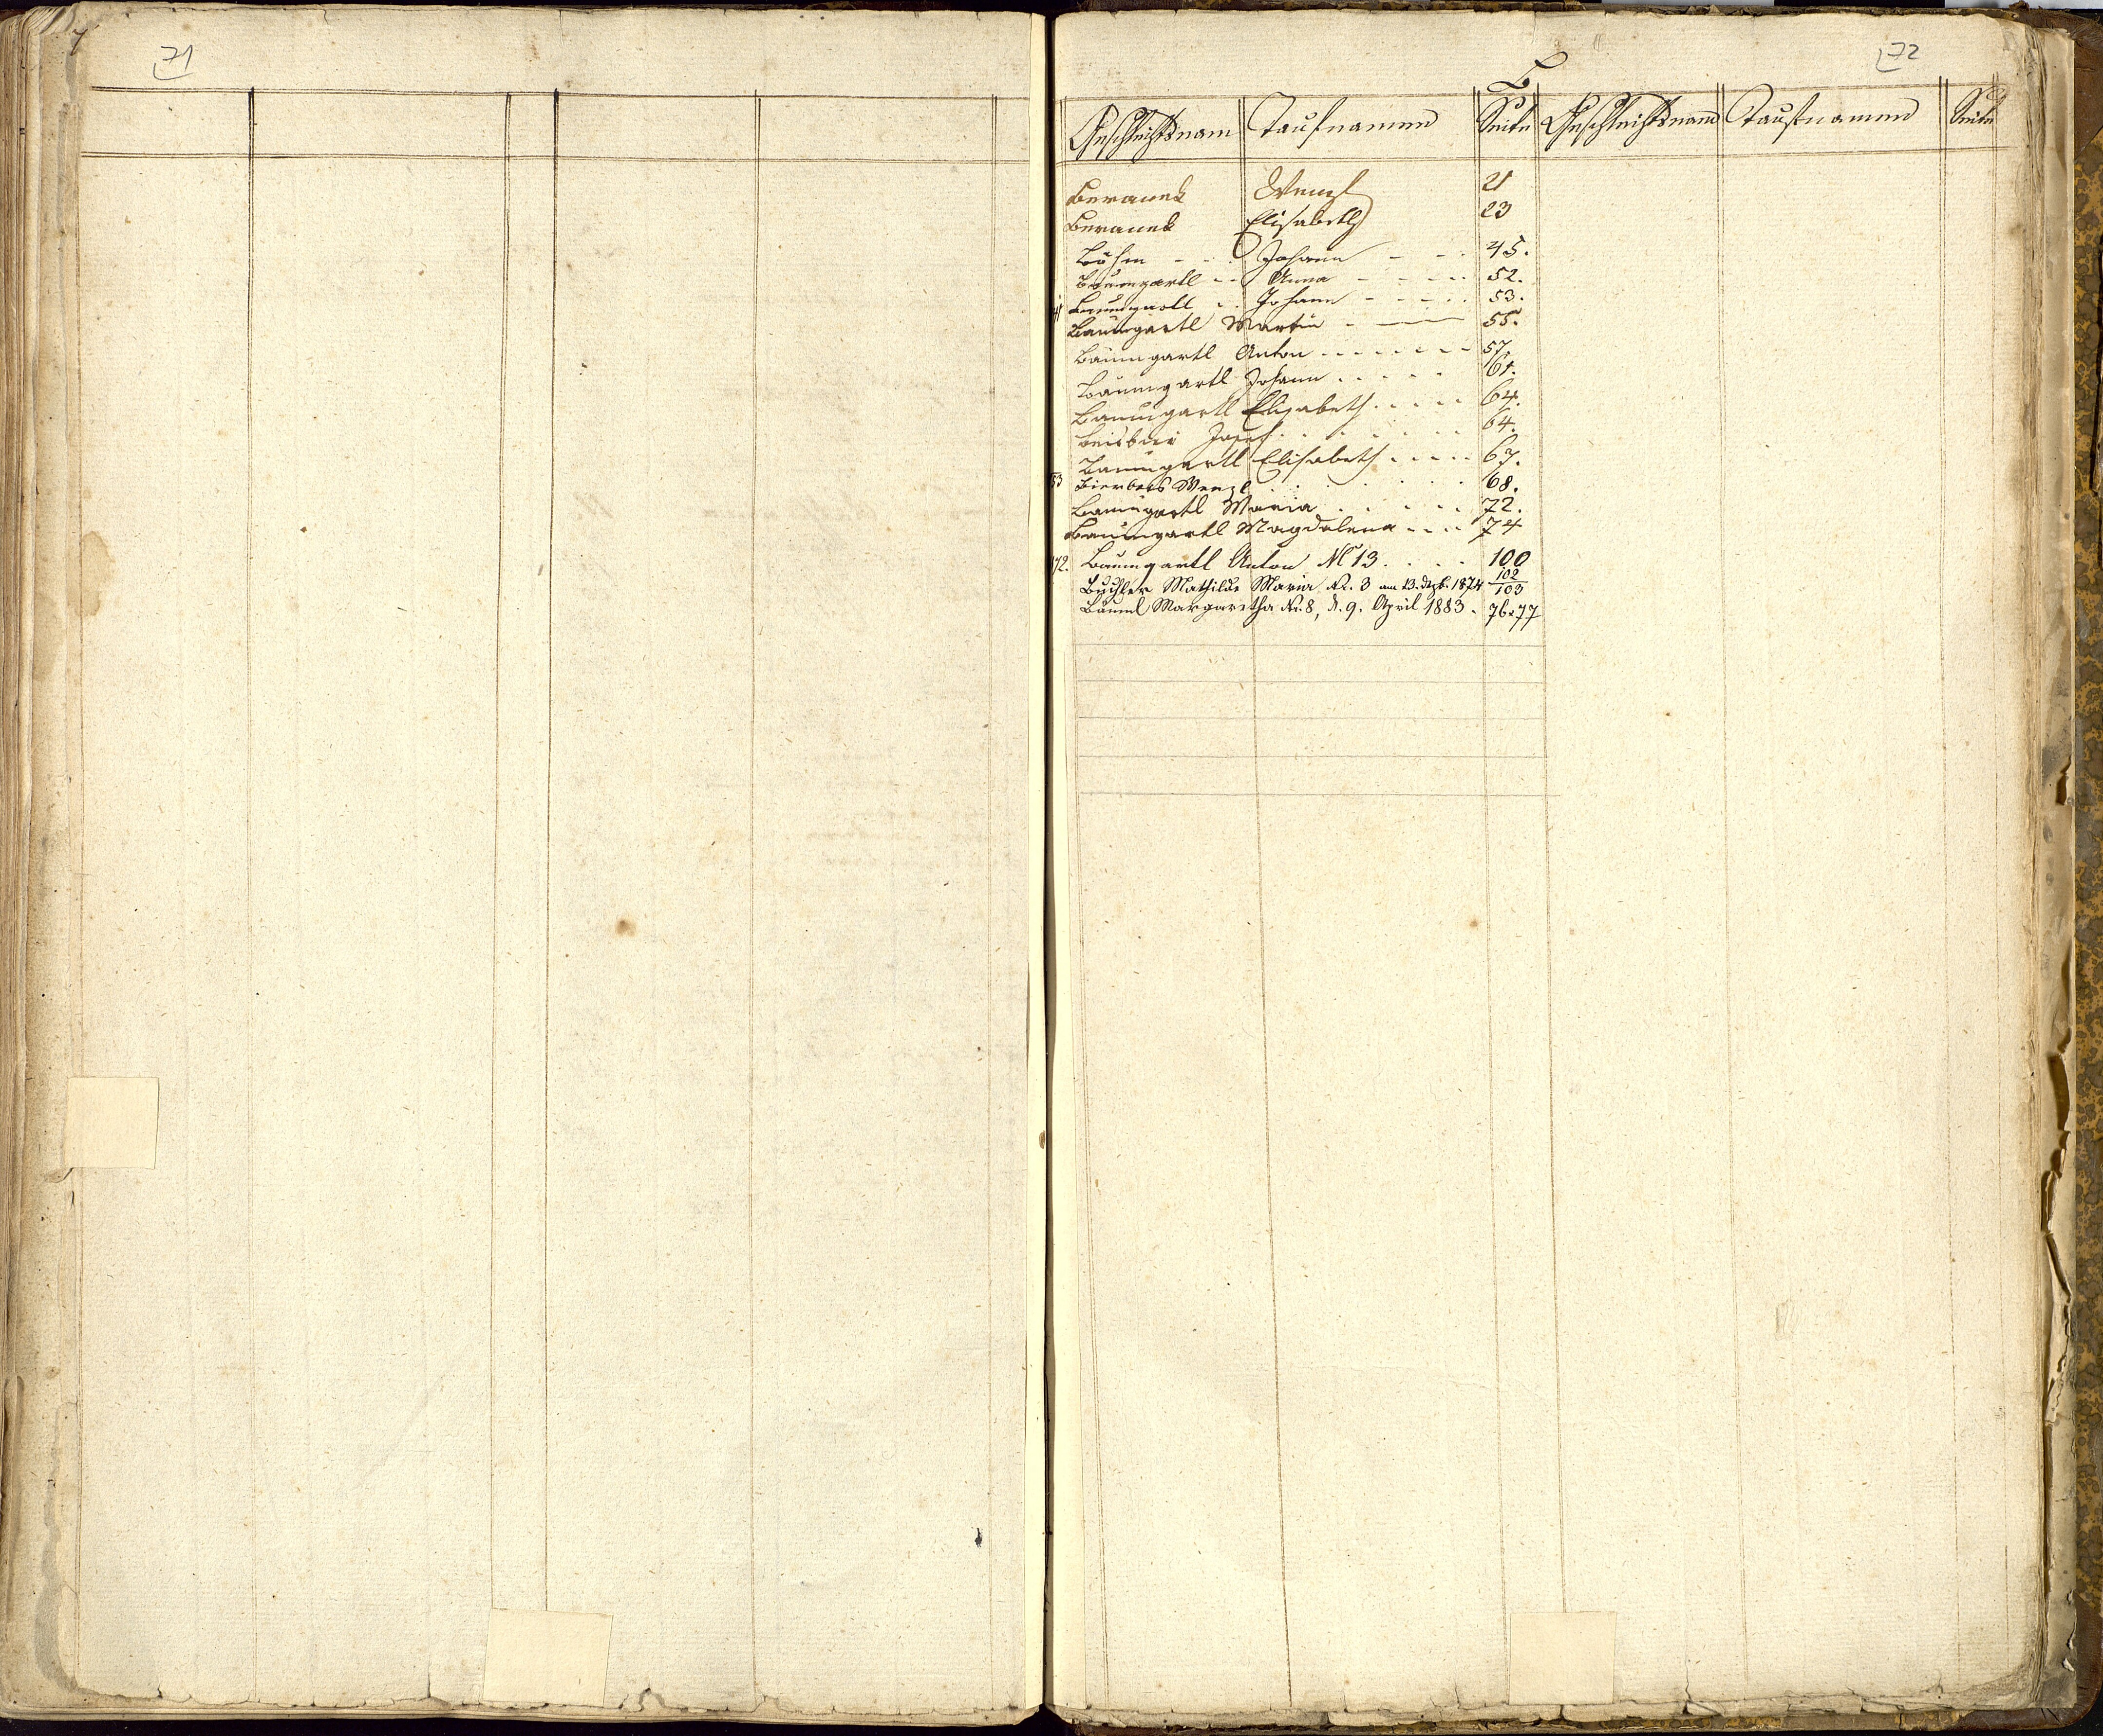 71
72
B
Geschlechtsnam Taufnamen Seite Geschlechtsnam Taufnamen Seite
Beranek Wenzl 21
Beranek Elisabeth 23
Böhm - - Johann - - 45.
Baumgartl - - Anna - - - - 52.
Baumgartl - - Johann - - - - 53.
Baumgartl Martin - — 55.
Baumgartl Anton - - - - - - - 57
Baumgartl Johann . . . . . 61.
Baumgartl Elisabeth . . . . . 64.
Josef . . . . . . 64.
Baumgartl Elisabeth . . . . . 67.
53 Wenzl . . . . . . 68.
Baumgartl Maria . . . . . 72.
Baumgartl Magdalena - - - - 74
72. Baumgartl Anton N 13 . . . . 100
Buchler Mathilde Maria Nr. 3 am 13. Dezb. 1874 102/103
Bäuml Margaretha Nr. 8, d. 9. April 1883 - 76+77